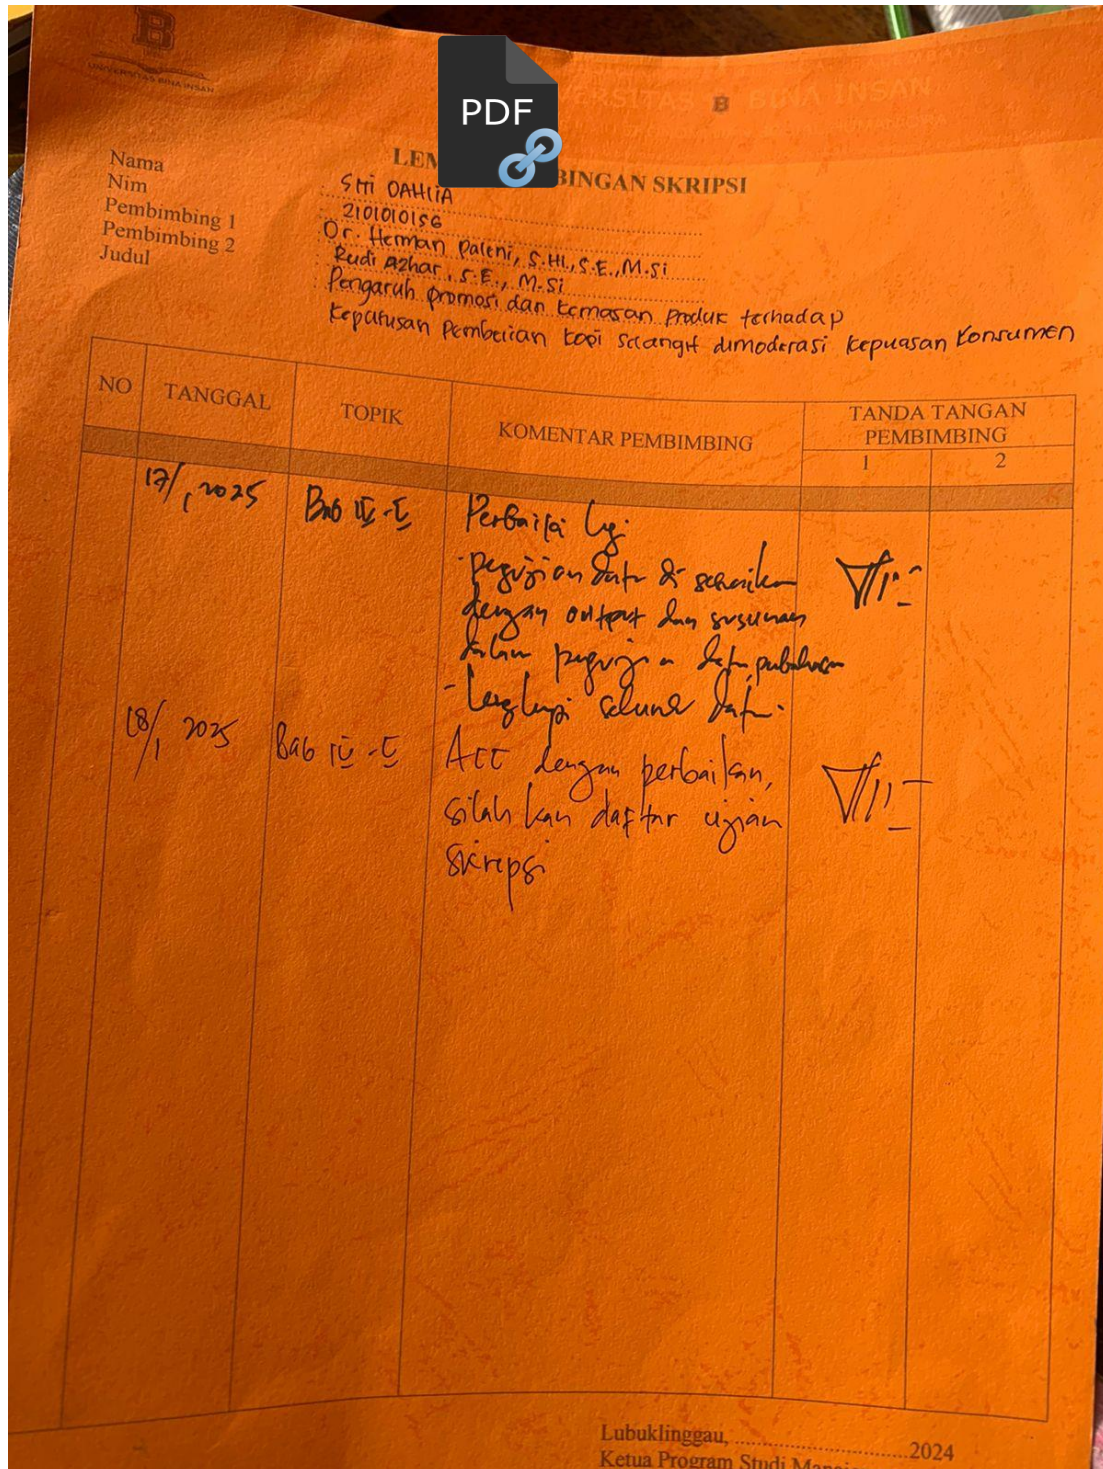 B
UNIVERSITAS BINA INSAN
PDF
B BINA INSAN
BINGAN SKRIPSI
Nama : SITI DAHLIA
Nim : 2101010156
Pembimbing 1 : Dr. Herman Paleni, S.HI., S.E., M.Si
Pembimbing 2 : Rudi Azhar, S.E., M.Si
Judul : Pengaruh promosi dan kemasan produk terhadap
keputusan pembelian kopi selangit dimoderasi kepuasan konsumen
NO TANGGAL TOPIK KOMENTAR PEMBIMBING TANDA TANGAN PEMBIMBING
1 2
17/1 2025 Bab IV-V Perbaiki lagi
dengan output dan susunan
dalam
- Lengkapi data.
18/1 2025 Bab IV-V Acc dengan perbaikan,
silahkan daftar ujian
skripsi
Lubuklinggau, 2024
Ketua Program Studi